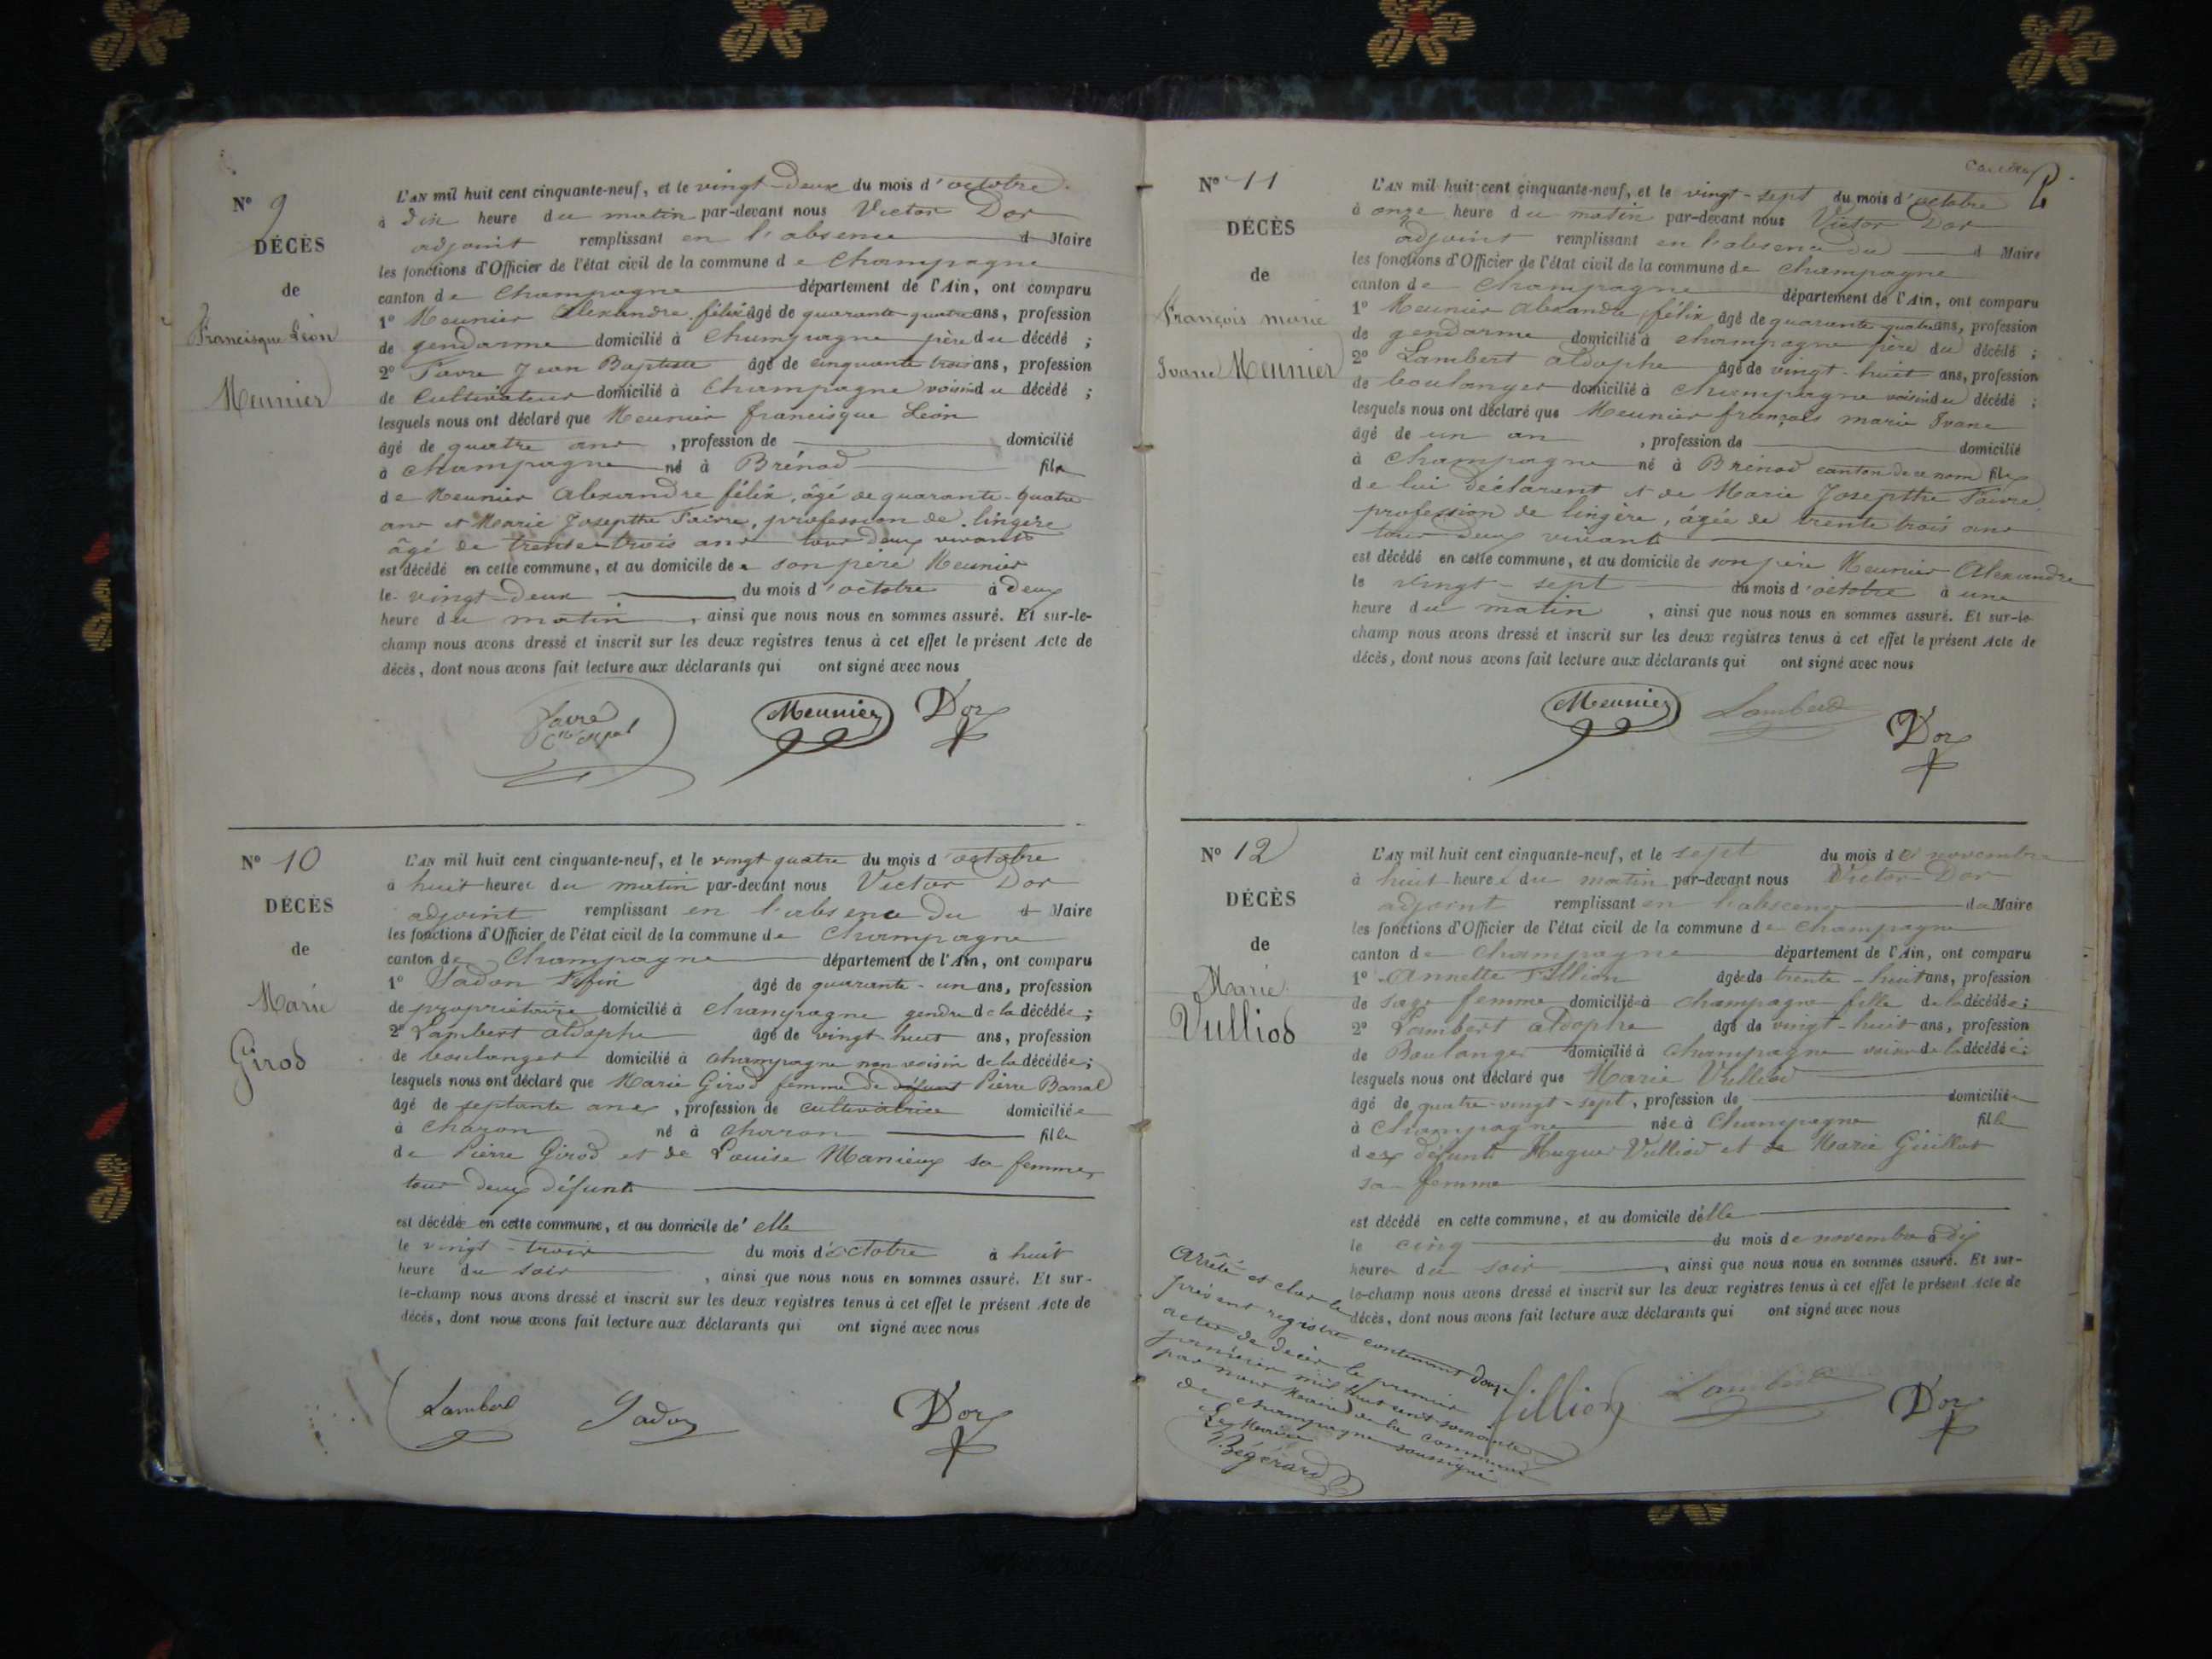 N° 9
DÉCÈS
de
Francisque Léon
Meunier
L'AN mil huit cent cinquante-neuf, et le vingt-deux du mois d'octobre
à dix heure du matin par-devant nous Victor Dor
adjoint remplissant en l'absence d Maire
les fonctions d'Officier de l'état civil de la commune de Champagne
canton de Champagne département de l'Ain, ont comparu
1° Meunier Alexandre félix âgé de quarante quatre ans, profession
de gendarme domicilié à Champagne père du décédé ;
2° Favre Jean Baptiste âgé de cinquante trois ans, profession
de Cultivateur domicilié à Champagne voisin du décédé ;
lesquels nous ont déclaré que Meunier francisque Léon
âgé de quatre ans , profession de domicilié
à Champagne né à Brénod fils
de Meunier Alexandre félix, âgé de quarante-quatre
ans et Marie Josepthe Faivre, profession de lingère
âgé de trente trois ans tous deux vivants
est décédé en cette commune, et au domicile de son père Meunier
le vingt-deux du mois d'octobre à deux
heure du matin , ainsi que nous nous en sommes assuré. Et sur-le-
champ nous avons dressé et inscrit sur les deux registres tenus à cet effet le présent Acte de
décès, dont nous avons fait lecture aux déclarants qui ont signé avec nous
Favre Meunier Dor
N° 10
DÉCÈS
de
Marie
Girod
L'AN mil huit cent cinquante-neuf, et le vingt quatre du mois d octobre
à huit heures du matin par-devant nous Victor Dor
adjoint remplissant en l'absence du d Maire
les fonctions d'Officier de l'état civil de la commune de Champagne
canton de Champagne département de l'Ain, ont comparu
1° Jadon âgé de quarante-un ans, profession
de propriétaire domicilié à Champagne gendre de la décédée ;
2° Lambert aldophe âgé de vingt huit ans, profession
de boulanger domicilié à Champagne non voisin de la décédée ;
lesquels nous ont déclaré que Marie Girod femme de défunt Pierre
âgé de septante ans , profession de cultivatrice domiciliée
à charon né à charon fille
de Pierre Girod et de Louise Manieux sa femme,
tous deux défunts
est décédé en cette commune, et au domicile de' elle
le vingt-trois du mois d'octobre à huit
heure du soir , ainsi que nous nous en sommes assuré. Et sur-
le-champ nous avons dressé et inscrit sur les deux registres tenus à cet effet le présent Acte de
décès, dont nous avons fait lecture aux déclarants qui ont signé avec nous
Lambert Jadon Dor
N° 11
DÉCÈS
de
François marie
Ivane Meunier
L'AN mil huit cent cinquante-neuf, et le vingt-sept du mois d'octobre
à onze heure du matin par-devant nous Victor Dor
adjoint remplissant en l'absence du d Maire
les fonctions d'Officier de l'état civil de la commune de Champagne
canton de Champagne département de l'Ain, ont comparu
1° Meunier Alexandre félix âgé de quarante quatre ans, profession
de gendarme domicilié à champagne père du décédé ;
2° Lambert aldophe âgé de vingt-huit ans, profession
de boulanger domicilié à champagne voisin du décédé ;
lesquels nous ont déclaré que Meunier français marie Ivane
âgé de un an , profession de domicilié
à Champagne né à Brénod canton de ce nom fils
de lui déclarant et de Marie Josepthe Faivre,
profession de lingère, âgée de trente trois ans
tous deux vivants
est décédé en cette commune, et au domicile de son père Meunier Alexandre
le vingt-sept du mois d'octobre à une
heure du matin , ainsi que nous nous en sommes assuré. Et sur-le-
champ nous avons dressé et inscrit sur les deux registres tenus à cet effet le présent Acte de
décès, dont nous avons fait lecture aux déclarants qui ont signé avec nous
Meunier Lambert Dor
N° 12
DÉCÈS
de
Marie
Vulliod
L'AN mil huit cent cinquante-neuf, et le sept du mois de novembre
à huit heures du matin par-devant nous Victor Dor
adjoint remplissant en l'abscence du Maire
les fonctions d'Officier de l'état civil de la commune de Champagne
canton de Champagne département de l'Ain, ont comparu
1° Annette Fillion âgé de trente-huit ans, profession
de sage femme domicilié à Champagne fille de la décédée ;
2° Lambert aldophe âgé de vingt-huit ans, profession
de Boulanger domicilié à Champagne voisin de la décédée ;
lesquels nous ont déclaré que Marie Vulliod
âgé de quatre-vingt-sept, profession de domiciliée
à Champagne née à Champagne fille
des défunts Hugues Vulliod et de Marie Guillot
sa femme
est décédé en cette commune, et au domicile d'elle
le cinq du mois de novembre à dix
heures du soir , ainsi que nous nous en sommes assuré. Et sur-
le-champ nous avons dressé et inscrit sur les deux registres tenus à cet effet le présent Acte de
décès, dont nous avons fait lecture aux déclarants qui ont signé avec nous
fillion Lambert Dor
Arrêté et clos le
présent registre contenant douze
actes de décès le premier
janvier mil huit cent soixante
par nous Maire de la commune
de Champagne soussigné
Le Maire
Bégérard